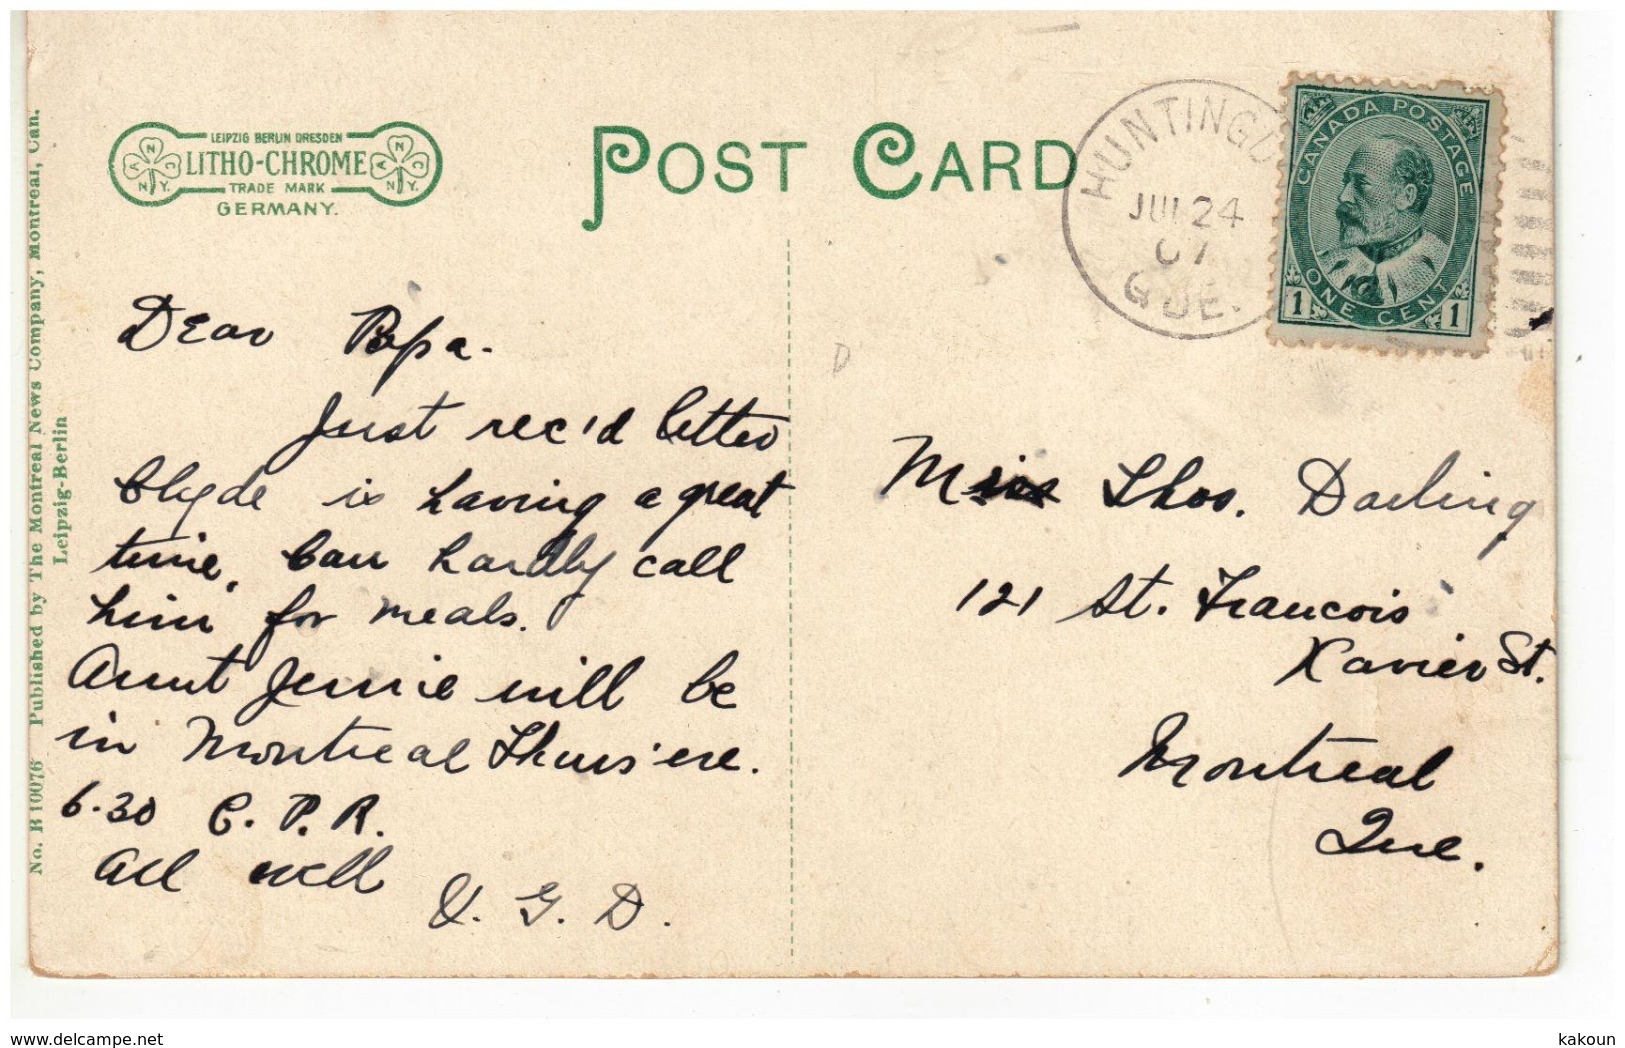 LEIPZIG BERLIN DRESDEN
LITHO-CHROME
TRADE MARK
GERMANY.
A N C N.Y.
A N C N.Y.
POST CARD
HUNTINGD
JUL 24
07
QUE.
CANADA POSTAGE
ONE CENT
1 1
No. R 10076 Published by The Montreal News Company, Montreal, Can.
Leipzig-Berlin
Dear Papa.
Just rec'd letter
Clyde is having a great
time, Can hardly call
him for meals.
Aunt Jennie will be
in Montreal Thurs'ere.
6.30 C.P.R.
All well
V. G. D.
D
Thos. Darling
121 St. Francois
Xavier St.
Montreal
Que.
www.delcampe.net
kakoun